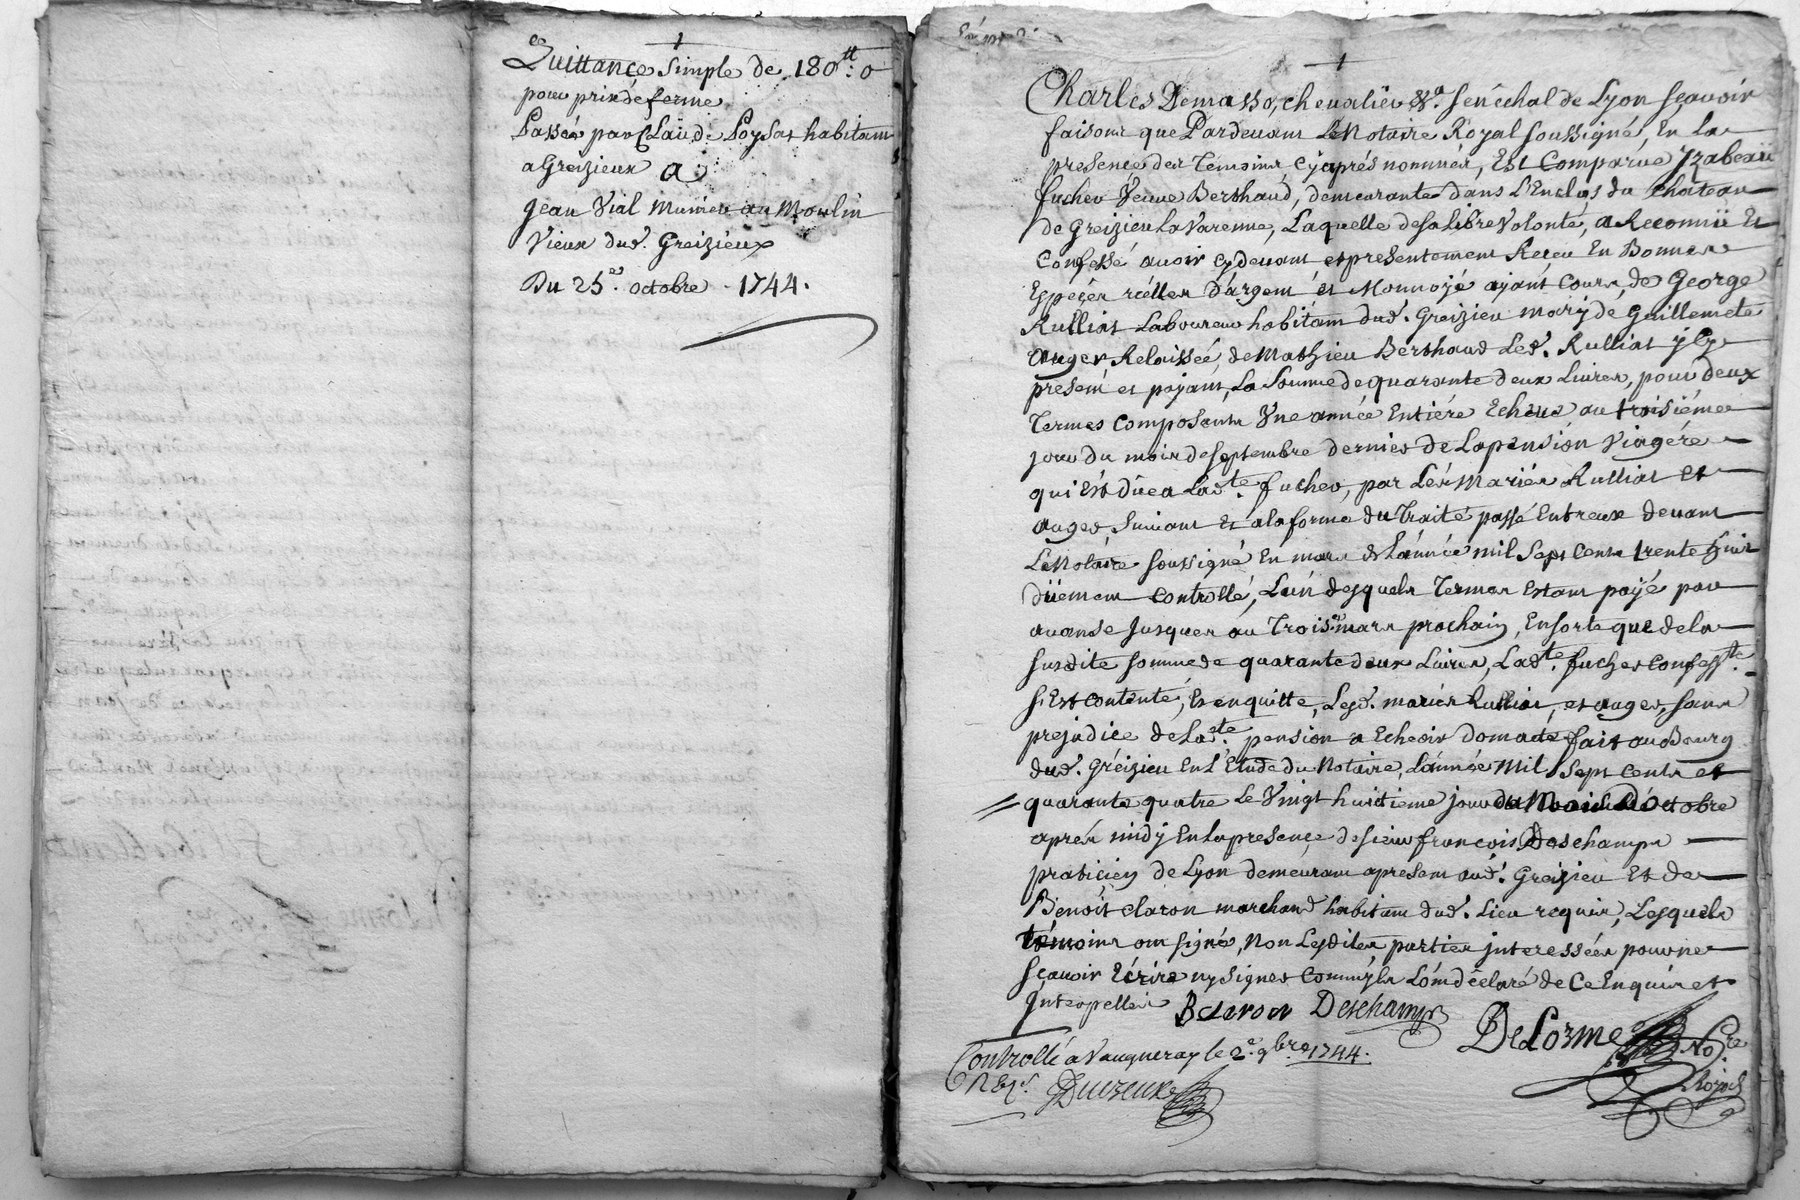 Quittance simple de 180tt: 0
pour prix de ferme
Passée par Claude Poysat habitant
a Greizieux a
Jean Vial Munier au Moulin
Vieux dud. Greizieux
Du 25e. octobre 1744.
Charles Demasso, chevalier &a. Senéchal de Lyon sçavoir
faisons que Pardevant Le Notaire Royal soussigné, En la
presence des Temoins cy aprés nommés, Est Comparüe Yzabeau
fucher Veuve Berthaud, demeurante dans L'Enclos du Chateau
de Greizieu La Varenne, Laquelle de sa Libre Volonté, a Reconnü Et
Confessé avoir cy devant et presentement Receu En Bonnes
Espeçes réelles D'argent et Monnoyé ayant Cours, de George
Rulliat Laboureur habitant dud. Greizieu mary de Guillemete
auger, Relaissée, de Mathieu Berthaud Led. Rulliat jcy
present et payant, La Somme de quarante deux Livres, pour deux
Termes Composants Vne année Entiére Echeue au troisiéme
jour du mois de septembre dernier de La pension Viagére
qui Est düe a Lad.te fucher, par Les Mariés Rulliat et
auger, Suivant Et a la forme du Traité passé Entreux devant
Le Notaire soussigné En mars de L'année mil Sept Cents trente huit
Düement Controllé, L'un desquels Termes Estant payé par
avance Jusques au Trois.e mars prochain, En sorte que de la
susdite somme de quarante deux Livres, Lad.te fucher confess.te
s'Est contenté, Et en quitte, Lesd. mariés Rulliat, et auger, sans
prejudice de Lad.te pension a Echeoir Dont acte fait au Bourg
dud. Greizieu En L'Etude du Notaire, L'année Mil Sept Cents et
quarante quatre Le Vingt huitieme jour du Mois D'octobre
aprés midy En la presençe de sieur françois Deschamps
praticien de Lyon demeurant apresent aud. Greizieu Et de
Benoit claron marchand habitant dud. Lieu requis, Lesquels
témoins ont signé, Non Lesdites parties jnteressées pour ne
sçavoir Ecrire ny signer Comm'jls L'ont déclaré de Ce Enquis et
Jnterpellés B claron Deschamps
DeLorme No.re
Royal
Controllé a Vaugneray le 2e. 9bre 1744.